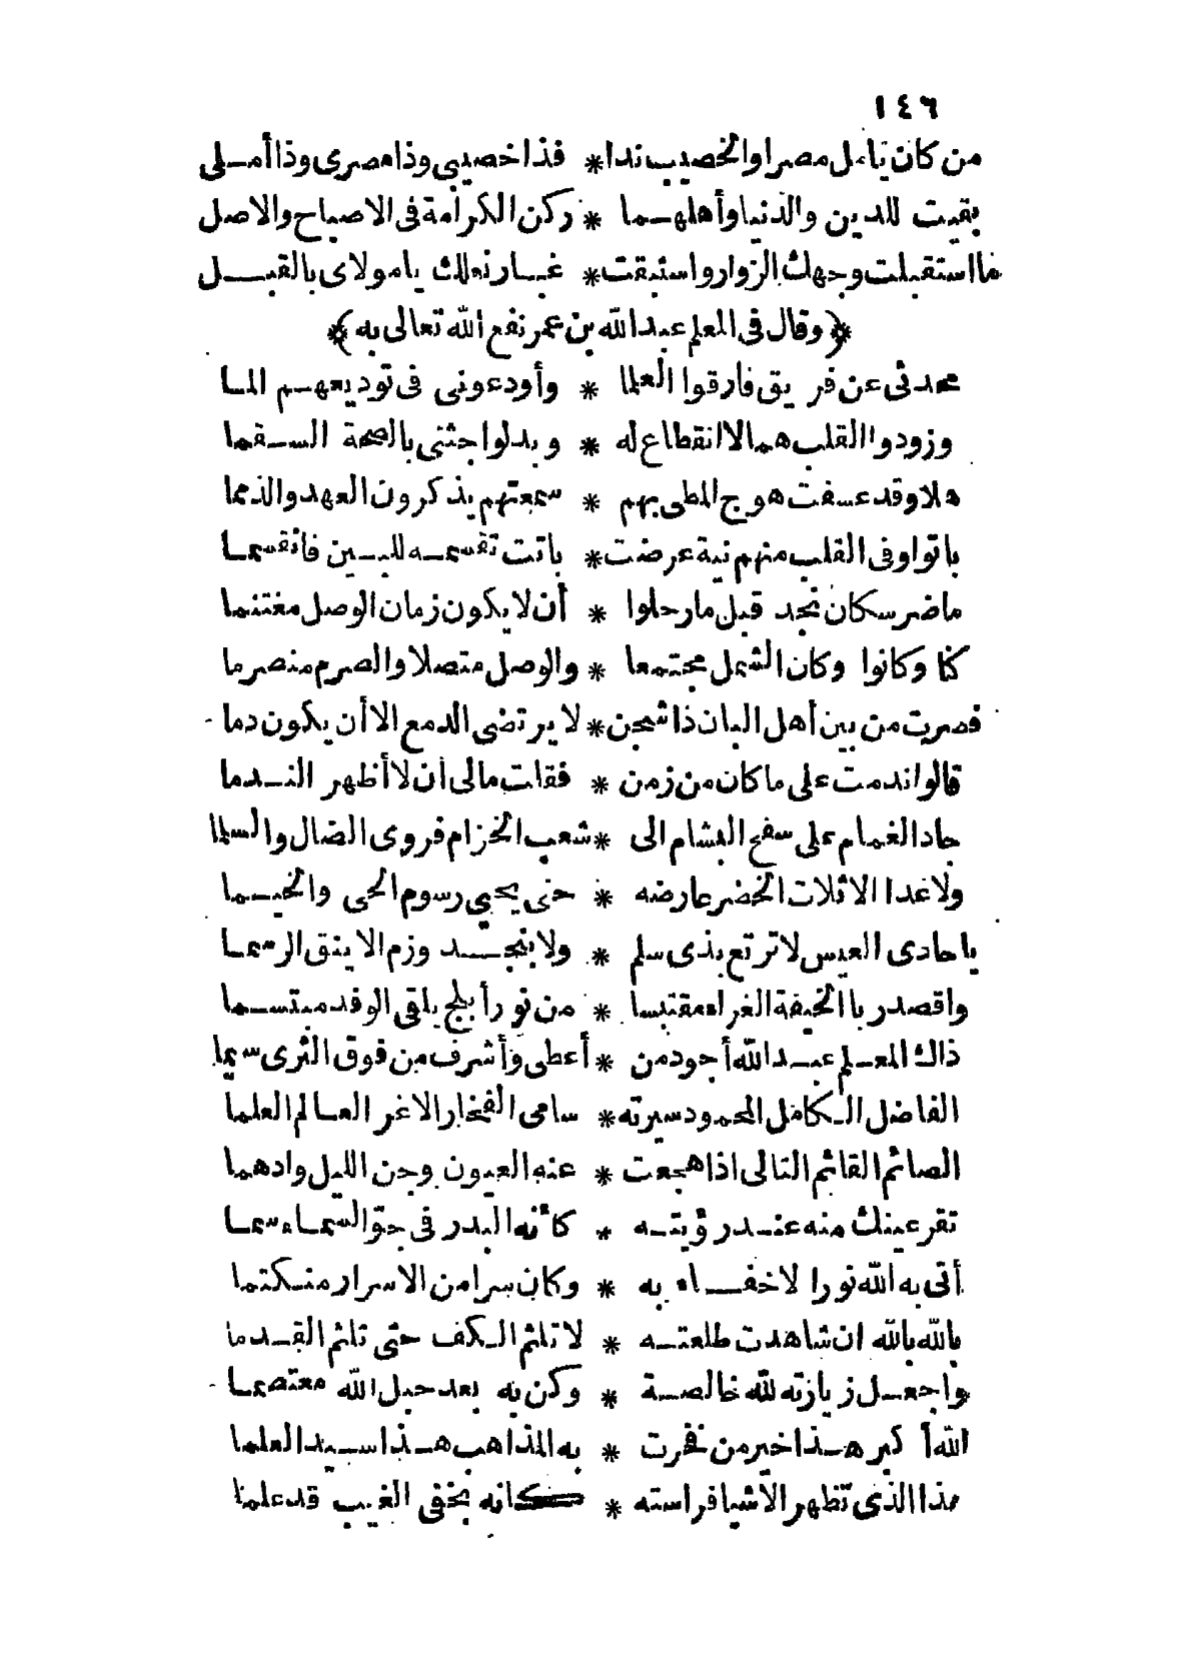 ١٤٦
من كان يأمل مصرا والخصيب ندا * فذا خصيبي وذا مصرى وذا أمـلى
بقيت للدين والدنيا وأهلهـما * ركن الكرامة فى الاصباح والاصل
ما استقبلت وجهك الزوار واستبقت * غبـار نعلك يا مولاى بالقبـل
﴿وقال فى المعلم عبد الله بن عمر نفع الله تعالى به﴾
محدثى عن فريق فارقوا العلما * وأودعونى فى توديعهـم المـا
وزودوا القلب هما لا انقطاع له * وبدلوا جثتى بالصحة السـقما
هلا وقد عسفت هوج المطى بهم * سمعتهم يذكرون العهد والذمما
باتوا وفى القلب منهم نية عرضت * باتت تقسمـه للبـين فانقسمـا
ماضر سكان نجد قبل مارحلوا * أن لا يكون زمان الوصل مغتنما
كنا وكانوا وكان الشمل مجتمعا * والوصل متصلا والصرم منصرما
فصرت من بين أهل البان ذا شجن * لا يرتضى الدمع الا أن يكون دما
قالوا ندمت على ما كان من زمن * فقلت مالى أن لا أظهر النـدما
جاد الغمام على سفح البشام الى * شعب الخزام فروى الضال والسلما
ولا عدا الاثلات الخضر عارضه * حتى يحيي رسوم الحى والخيـما
يا حادى العيس لا ترتع بذى سلم * ولا بنجـد وزم الاينق الرسمـا
واقصد ربا الخيفة الغراء مقتبسا * من نور أبلج يلقى الوفد مبتسـما
ذاك المعـلم عبـد الله أجود من * أعطى وأشرف من فوق الثرى سيما
الفاضل الـكامل المحمود سيرته * سامى الفخار الاغر العـالم العلما
الصائم القائم التالى اذا هجعت * عنه العيون وجن الليل وادهما
تقر عينك منه عنـد رؤيتـه * كأنه البدر فى جوّ السمـاء سمـا
أتى به الله نورا لا خفـاء به * وكان سرا من الاسرار منـكتما
بالله بالله ان شاهدت طلعتـه * لا تلثم الـكف حتى تلثم القـدما
واجعـل زيارته لله خالصـة * وكن به بعد حبل الله معتصمـا
الله أكبر هـذا خير من فخرت * به المذاهب هـذا سـيد العلما
هذا الذى تظهر الأشيا فراسته * كانه بخفى الغيب قد علما